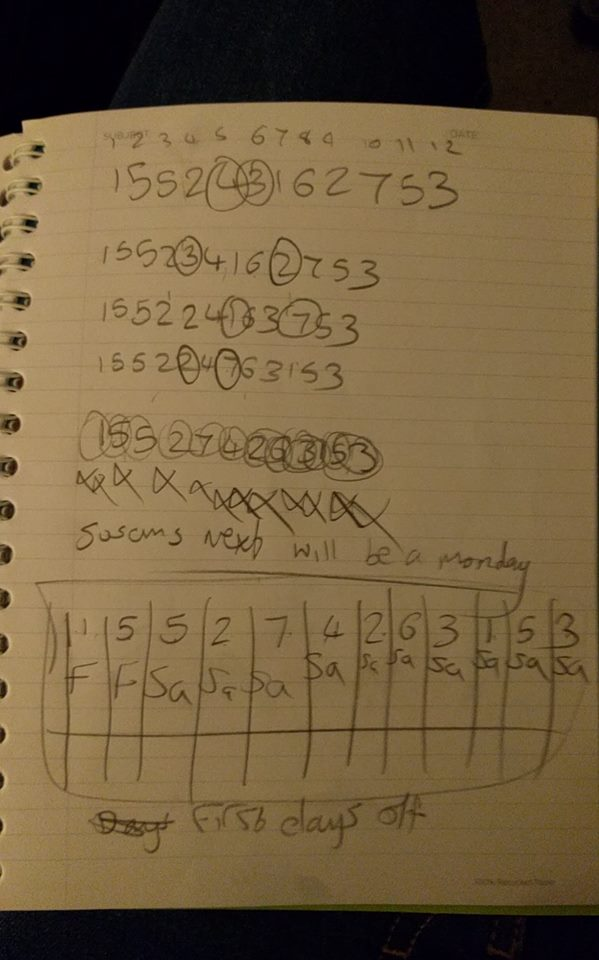 SUBJECT DATE
1 2 3 4 5 6 7 8 9 10 11 12
155243162753
155234162753
155224163753
155224763153
155274263153
Susans next will be a monday
1 5 5 2 7 4 2 6 3 1 5 3
F F Sa Sa Sa Sa Sa Sa Sa Sa Sa Sa
First days off